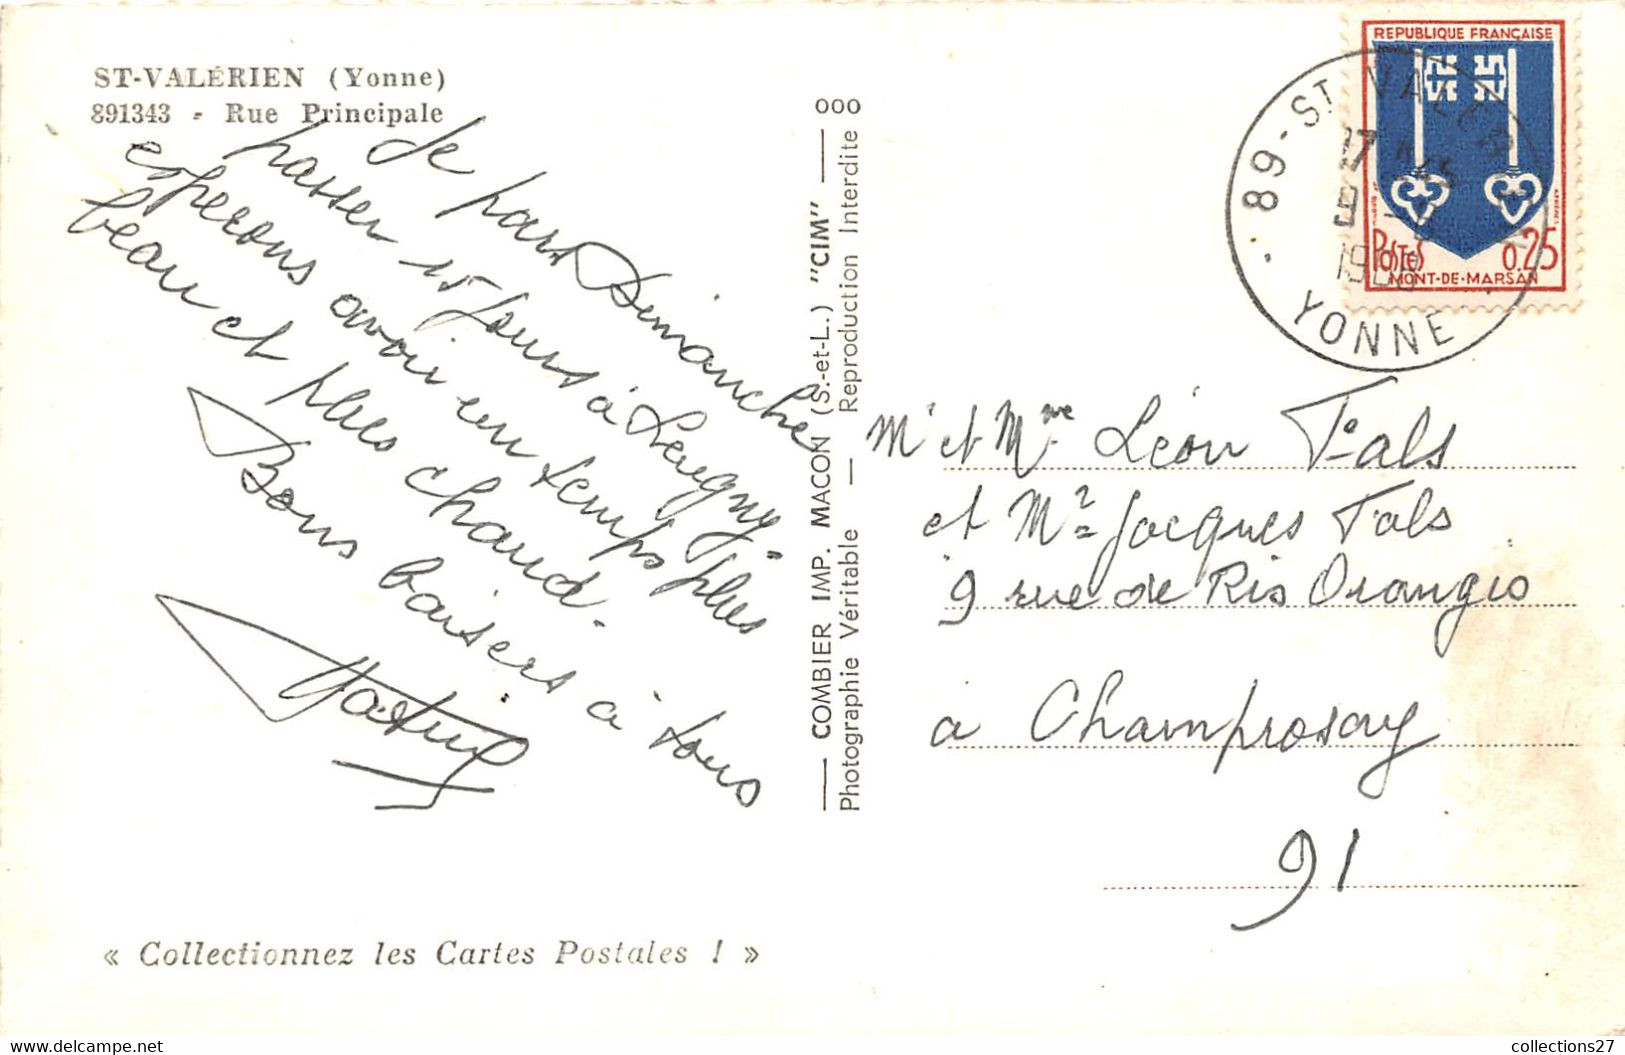 ST-VALÉRIEN (Yonne)
891343 - Rue Principale
Je pars Dimanche
passer 15 jours à Leugny.
esperons avoir un temps plus
beau et plus chaud.
Bons baisers à tous
« Collectionnez les Cartes Postales ! »
COMBIER IMP. MACON (S.-et-L.) "CIM"
Photographie Véritable — Reproduction Interdite
000
REPUBLIQUE FRANÇAISE
POSTES 0.25
MONT-DE-MARSAN
89 - ST VALERIEN
17
YONNE
Mr et Mme Léon Fals
et Mr Jacques Fals
9 rue de Ris Orangis
à Champrosay
91
collections27